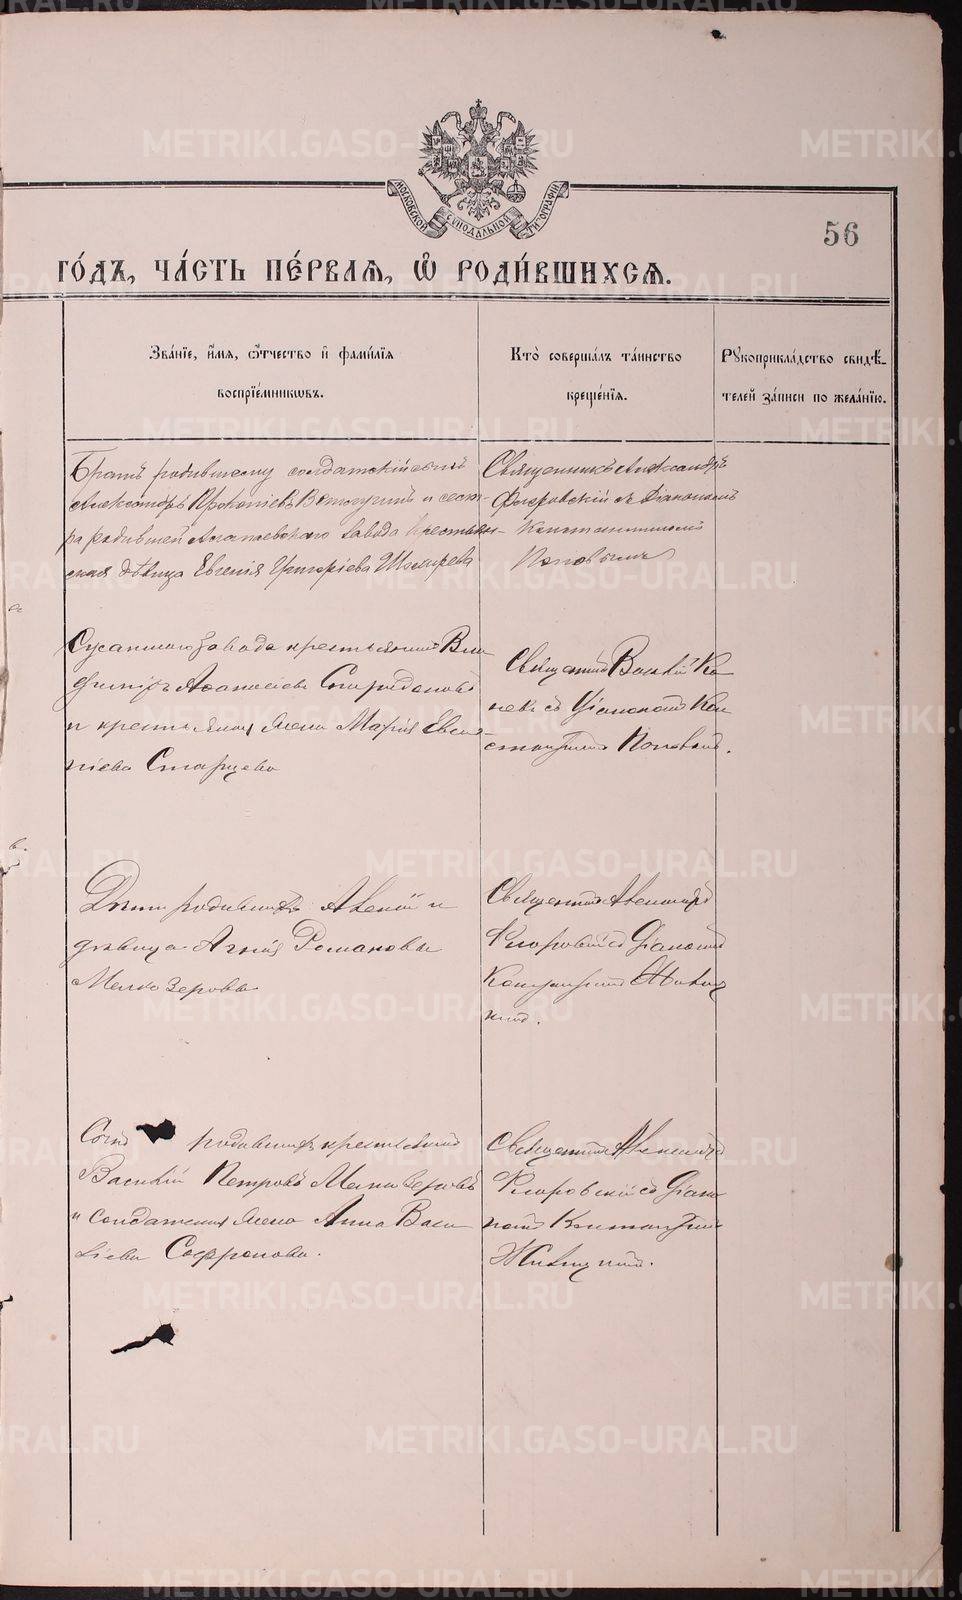 МОСКОВСКОЙ СѴНОДАЛЬНОЙ ТИПОГРАФІИ
56
ГО́ДЪ, ЧА́СТЬ ПЕ́РВАѦ, Ѡ҆ РОДИ́ВШИХСѦ.
Зва́нїе, и҆́мѧ, ѻ҆́тчество и҆ фами́лїѧ
воспрїе́мникѡвъ.
Кто̀ соверша́лъ та́инство
креще́нїѧ.
Рꙋкоприкла́дство свидѣ́-
телей за́писи по жела́нїю.
Братъ родившему солдатскій сынъ
Александръ Прокопіевъ и сест-
ра родившей Алапаевского завода крестьян-
ская дѣвица Евгенія Григоріева
Священникъ Александръ
Флоровскій съ Діакономъ
Константиномъ
Поповымъ
завода крестьянинъ Вла
димиръ Афанасіевъ Спиридоновъ
и крестьянская жена Марія Евге
ніева Старцева
Священникъ Василій
съ Діакономъ Кон
стантиномъ Поповымъ.
Дѣти родившихъ Алексій и
дѣвица Агнія Романовы
Мелкозеровы
Священникъ Александръ
Флоровскій съ Діакономъ
Константиномъ Живиц
кимъ.
родившихъ крестьянинъ
Василій Петровъ Мелкозеровъ
и солдатская жена Анна Васи
ліева Софронова.
Священникъ Александръ
Флоровскій съ Діако
номъ Константин
Живицкимъ.
METRIKI.GASO-URAL.RU